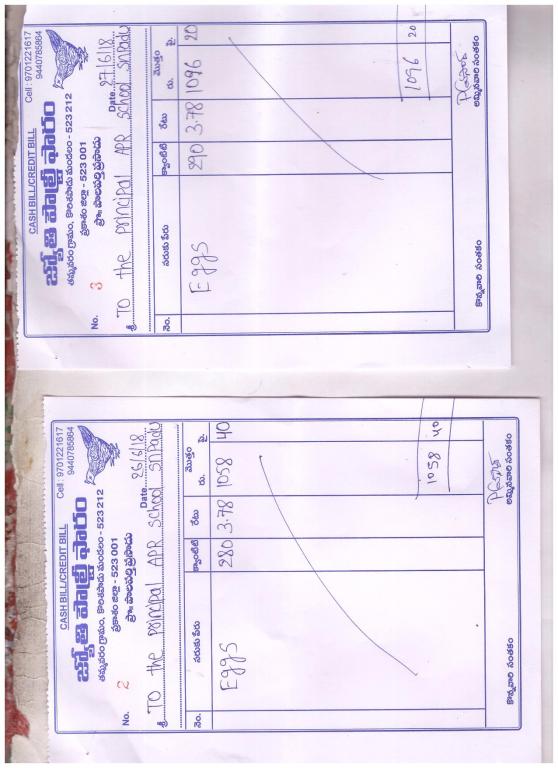 CASH BILL/CREDIT BILL
Cell : 9701221617
9440785864
జ్యోతి పౌల్ట్రీ ఫారం
తమ్మవరం గ్రామం, కొరిశపాడు మండలం - 523 212
ప్రకాశం జిల్లా - 523 001
ప్రొః పాలపర్తి ప్రసాదు
No. 3
Date 27/6/18
శ్రీ To the principal APR school SnPadu
నెం. సరుకు పేరు క్వాంటిటీ రేటు మొత్తం
రు. పై.
Eggs 290 3.78 1096 20
1096 20
కొన్నవారి సంతకం అమ్మినవారి సంతకం
CASH BILL/CREDIT BILL
Cell : 9701221617
9440785864
జ్యోతి పౌల్ట్రీ ఫారం
తమ్మవరం గ్రామం, కొరిశపాడు మండలం - 523 212
ప్రకాశం జిల్లా - 523 001
ప్రొః పాలపర్తి ప్రసాదు
No. 2
Date 26/6/18
శ్రీ To the principal APR school SnPadu
నెం. సరుకు పేరు క్వాంటిటీ రేటు మొత్తం
రు. పై.
Eggs 280 3.78 1058 40
1058 40
కొన్నవారి సంతకం అమ్మినవారి సంతకం